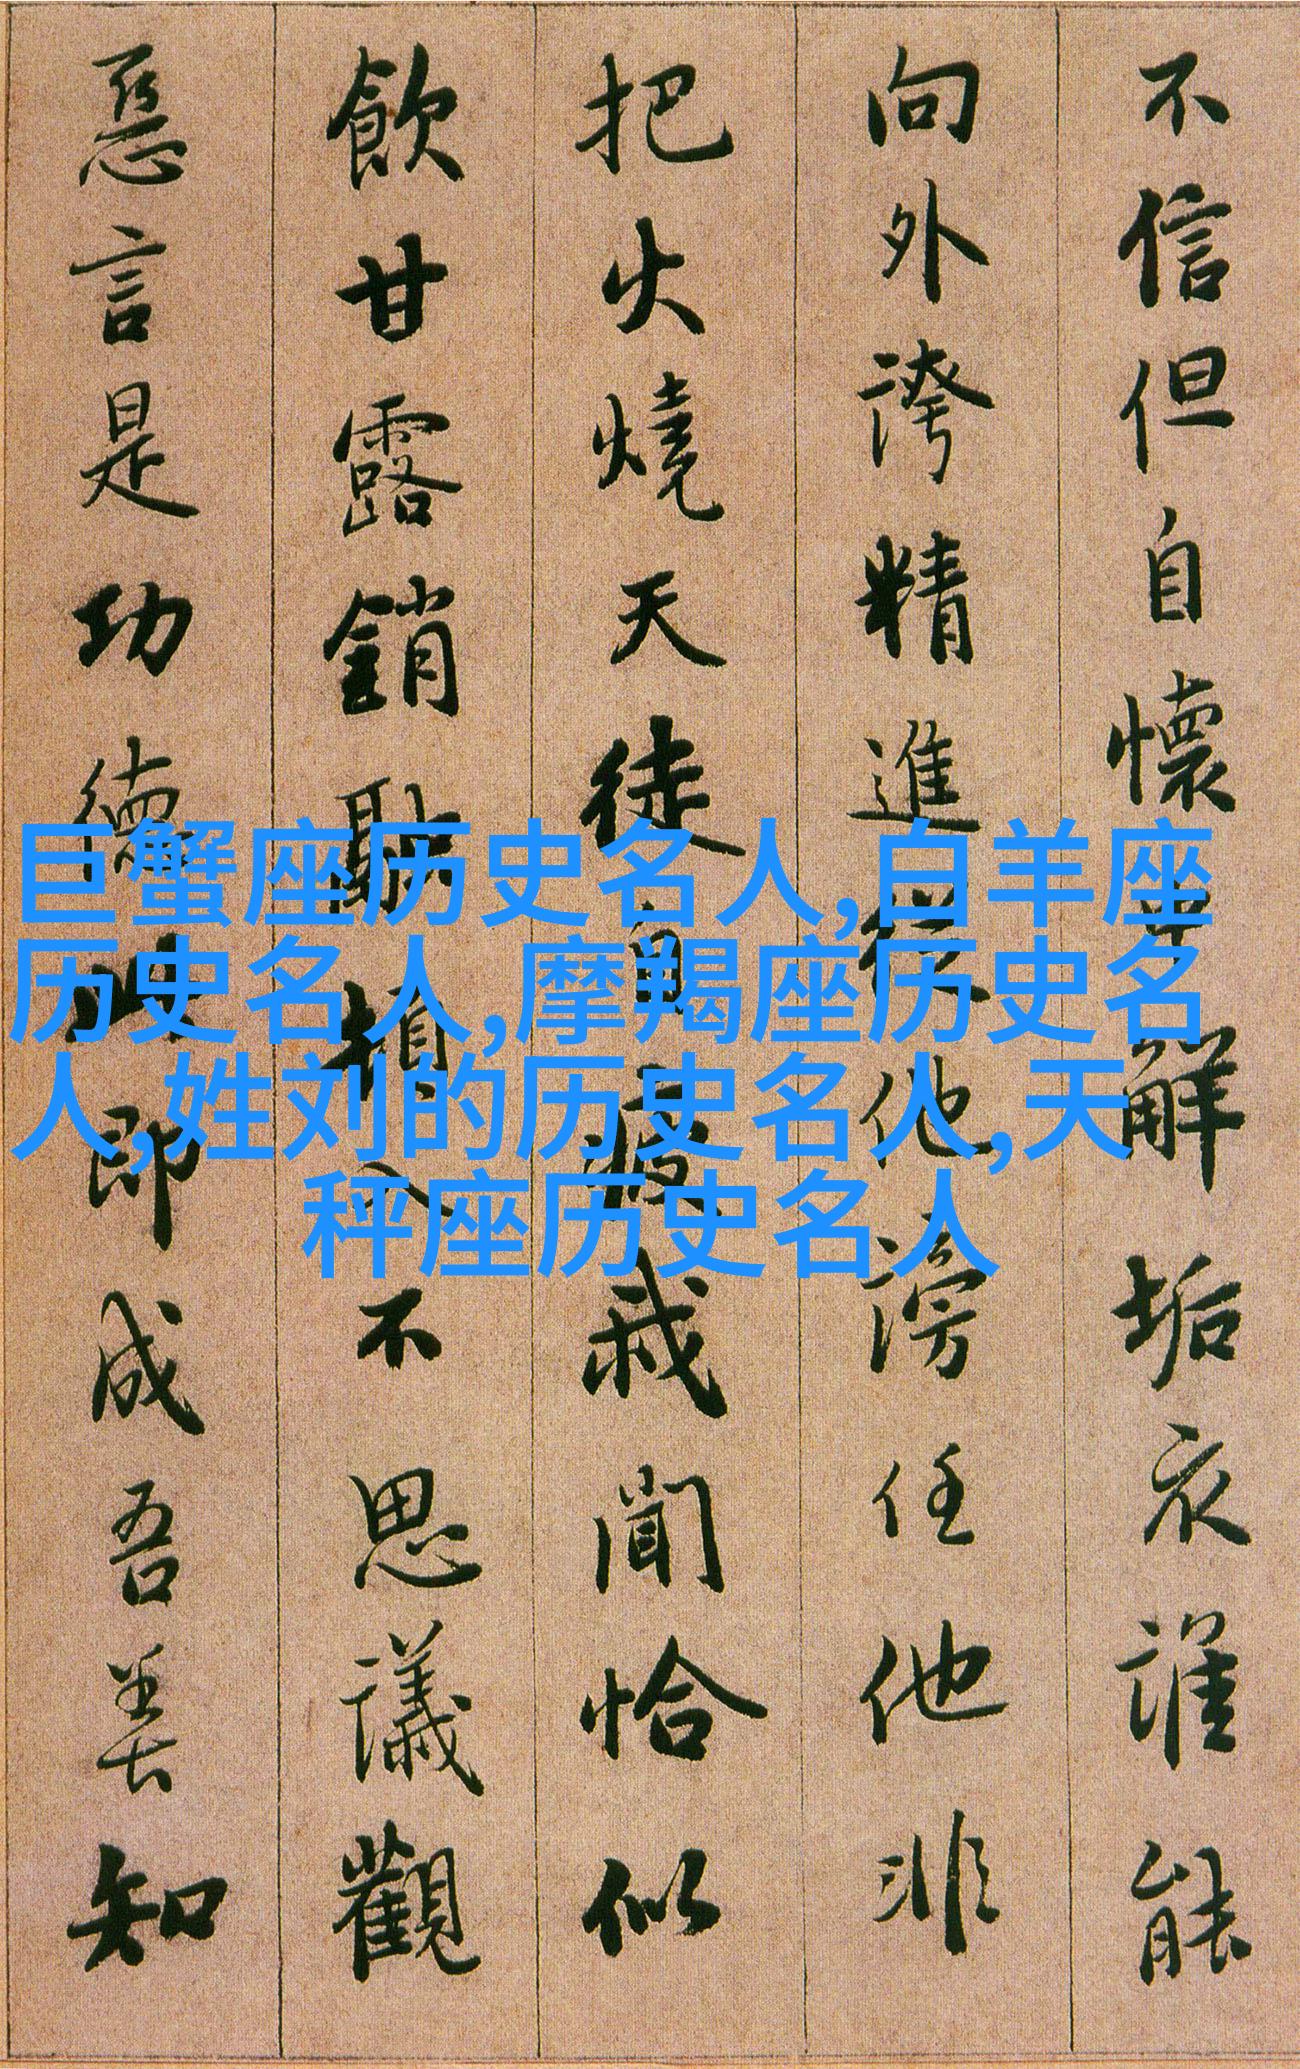 不信但自懷中解垢衣誰能
向外誇精進從他謗任他非
把火燒天徒自疲我聞恰似
飲甘露銷融頓入不思議觀
惡言是功德此即成吾善知
巨蟹座历史名人,白羊座
历史名人,摩羯座历史名
人,姓刘的历史名人,天
秤座历史名人